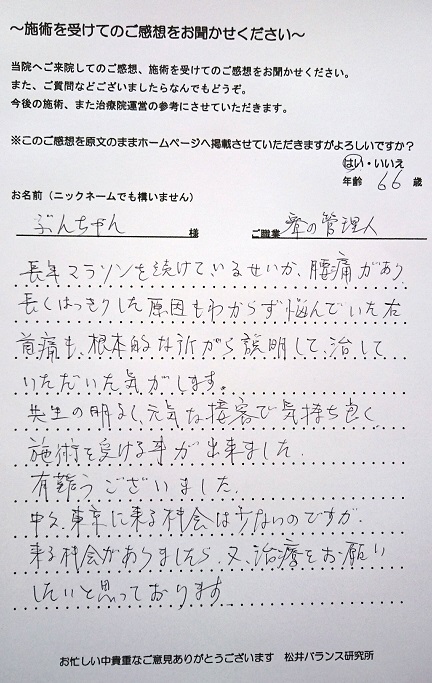 ～施術を受けてのご感想をお聞かせください～
当院へご来院してのご感想、施術を受けてのご感想をお聞かせください。
また、ご質問などございましたらなんでもどうぞ。
今後の施術、また治療院運営の参考にさせていただきます。
※このご感想を原文のままホームページへ掲載させていただきますがよろしいですか？
はい・いいえ
年齢 66 歳
お名前（ニックネームでも構いません）
ぶんちゃん 様 ご職業 寮の管理人
長年マラソンを続けているせいか、腰痛があり
長くはっきりした原因もわからず悩んでいた右
首痛も、根本的な所から説明して、治して
いただいた気がします。
先生の明るく、元気な接客で気持ち良く
施術を受ける事が出来ました.
有難うございました.
中々、東京に来る機会は少ないのですが.
来る機会がありましたら、又、治療をお願い
したいと思っております
お忙しい中貴重なご意見ありがとうございます 松井バランス研究所